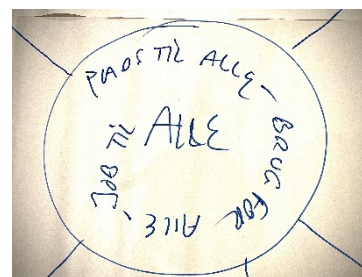 PLADS TIL ALLE - BRUG FOR ALLE, JOB TIL
ALLE